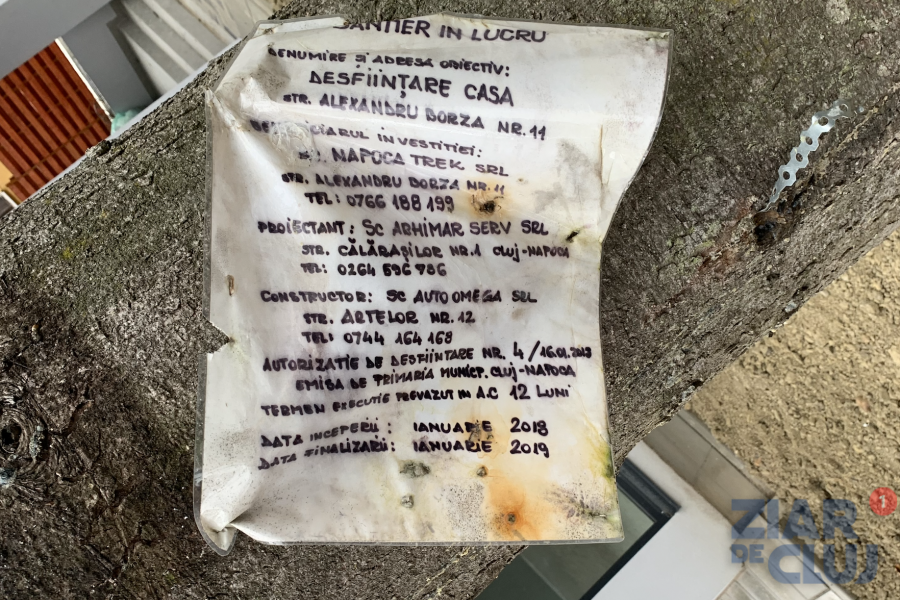 SANTIER IN LUCRU
DENUMIRE ȘI ADRESA OBIECTIV:
DESFIINȚARE CASA
STR. ALEXANDRU BORZA NR. 11
BENEFICIARUL INVESTITIEI:
NAPOCA TREK SRL
STR. ALEXANDRU BORZA NR. 11
TEL: 0766 188 199
PROIECTANT: SC ARHIMAR SERV SRL
STR. CĂLĂRAȘILOR NR. 1 CLUJ-NAPOCA
TEL: 0264 596 786
CONSTRUCTOR: SC AUTO OMEGA SRL
STR. ARTELOR NR. 12
TEL: 0744 164 168
AUTORIZATIE DE DESFIINTARE NR. 4/16.01.2018
EMISA DE PRIMARIA MUNICP. CLUJ-NAPOCA
TERMEN EXECUTIE PREVAZUT IN A.C 12 LUNI
DATA INCEPERII: IANUARIE 2018
DATA FINALIZARII: IANUARIE 2019
ZIAR
DE CLUJ